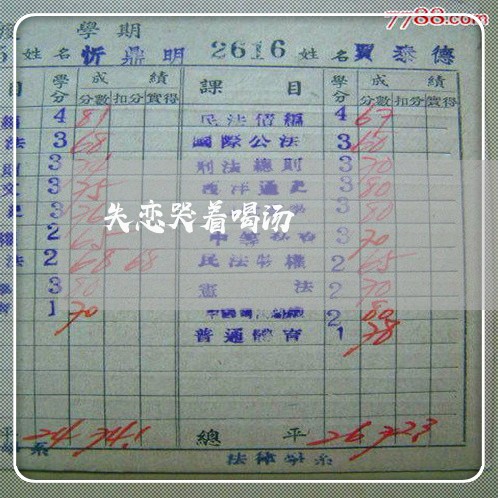 7788.com
學期
姓名 忻鼎明 2616 姓名 賈泰德
目 學分 成績 課目 學分 成績
分數 扣分 實得 分數 扣分 實得
4 81 民法債編 4 67
法 3 68 國際公法 3 60
3 刑法總則 3 70
3 75 西洋通史 3 80
3 3 80
權 2 3 70
法 2 68 68 民法物權 2 65
3 80 憲法 2 70
1 70 2 80
普通體育 1 78
失恋哭着喝汤
平 24 74.1 總平 26 72.3
系 法律學系